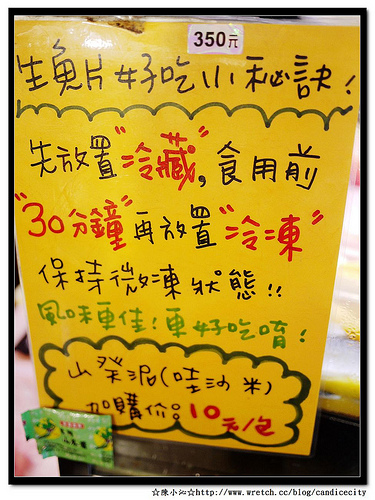 350元
生魚片好吃小秘訣!
先放置"冷藏",食用前
"30分鐘"再放置"冷凍"
保持微凍狀態!!
風味更佳!更好吃唷!
山葵泥(哇沙米)
加購價:10元/包
☆陳小沁☆http://www.wretch.cc/blog/candicecity